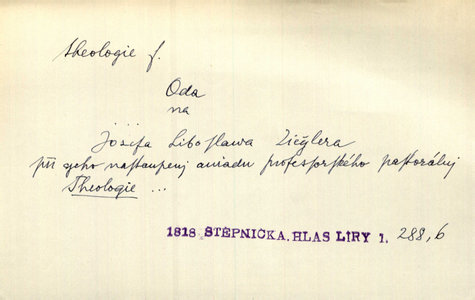 theologie f.
Oda
na
Jozefa Liboslawa Zieglera
při geho nastaupenj auřadu professorského pastorálnj
Theologie ...
1818 ŠTĚPNIČKA, HLAS LÍRY 1. 288, 6